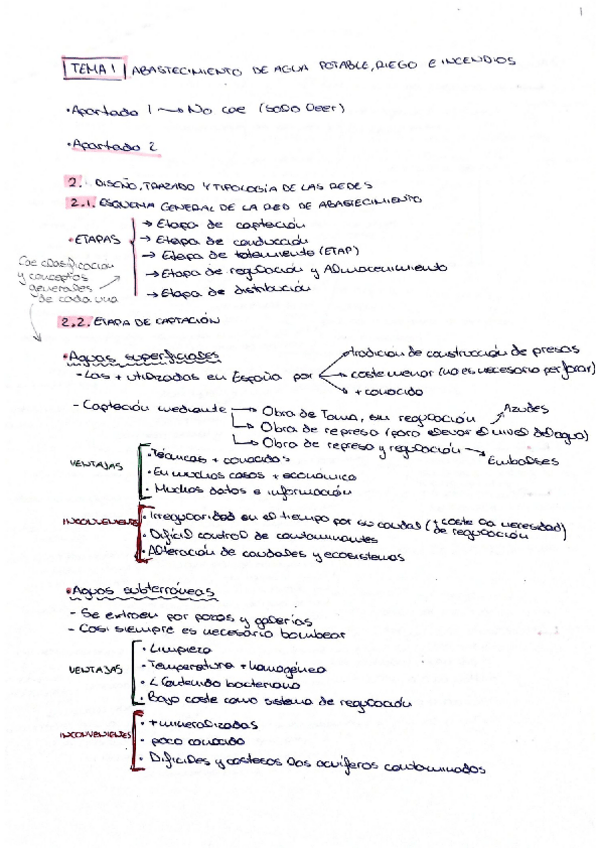 1
TEMA 1 ABASTECIMIENTO DE AGUA POTABLE, RIEGO E INCENDIOS
• Apartado 1 → No cae (solo leer)
• Apartado 2
2. DISEÑO, TRAZADO Y TIPOLOGÍA DE LAS REDES
2.1. ESQUEMA GENERAL DE LA RED DE ABASTECIMIENTO
• ETAPAS
→ Etapa de captación
→ Etapa de conducción
→ Etapa de tratamiento (ETAP)
→ Etapa de regulación y Almacenamiento
→ Etapa de distribución
Cae clasificación
y conceptos
generales
de cada una
2.2. ETAPA DE CAPTACIÓN
• Aguas superficiales
- Las + utilizadas en España por
tradición de construcción de presas
coste menor (no es necesario perforar)
+ conocido
- Captación mediante
→ Obra de Toma, sin regulación
→ Obra de represa (para elevar el nivel del agua)
Azudes
→ Obra de represa y regulación → Embalses
VENTAJAS
• Técnicas + conocidas
• En muchos casos + económico
• Muchos datos e información
INCONVENIENTES
• Irregularidad en el tiempo por su caudal (+ coste la necesidad)
de regulación
• Difícil control de contaminantes
• Alteración de caudales y ecosistemas
• Aguas subterráneas
- Se extraen por pozos y galerías
- Casi siempre es necesario bombear
VENTAJAS
• Limpieza
• Temperatura + homogénea
• < Contenido bacteriano
• Bajo coste como sistema de regulación
INCONVENIENTES
• + mineralizadas
• poco conocido
• Difíciles y costosos los acuíferos contaminados